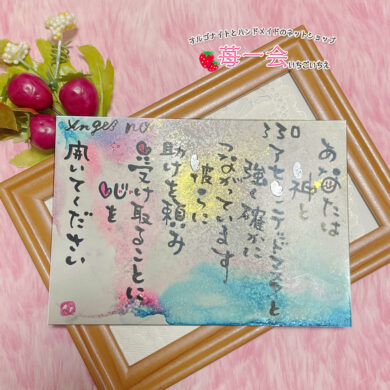 オルゴナイトとハンドメイドのネットショップ
苺一会
いちごいちえ
Angel no.
330
あなたは
神と
アセンテッドマスターと
強く確かに
つながっています
彼らに
助けを頼み
受け取ることに
心を
開いてください